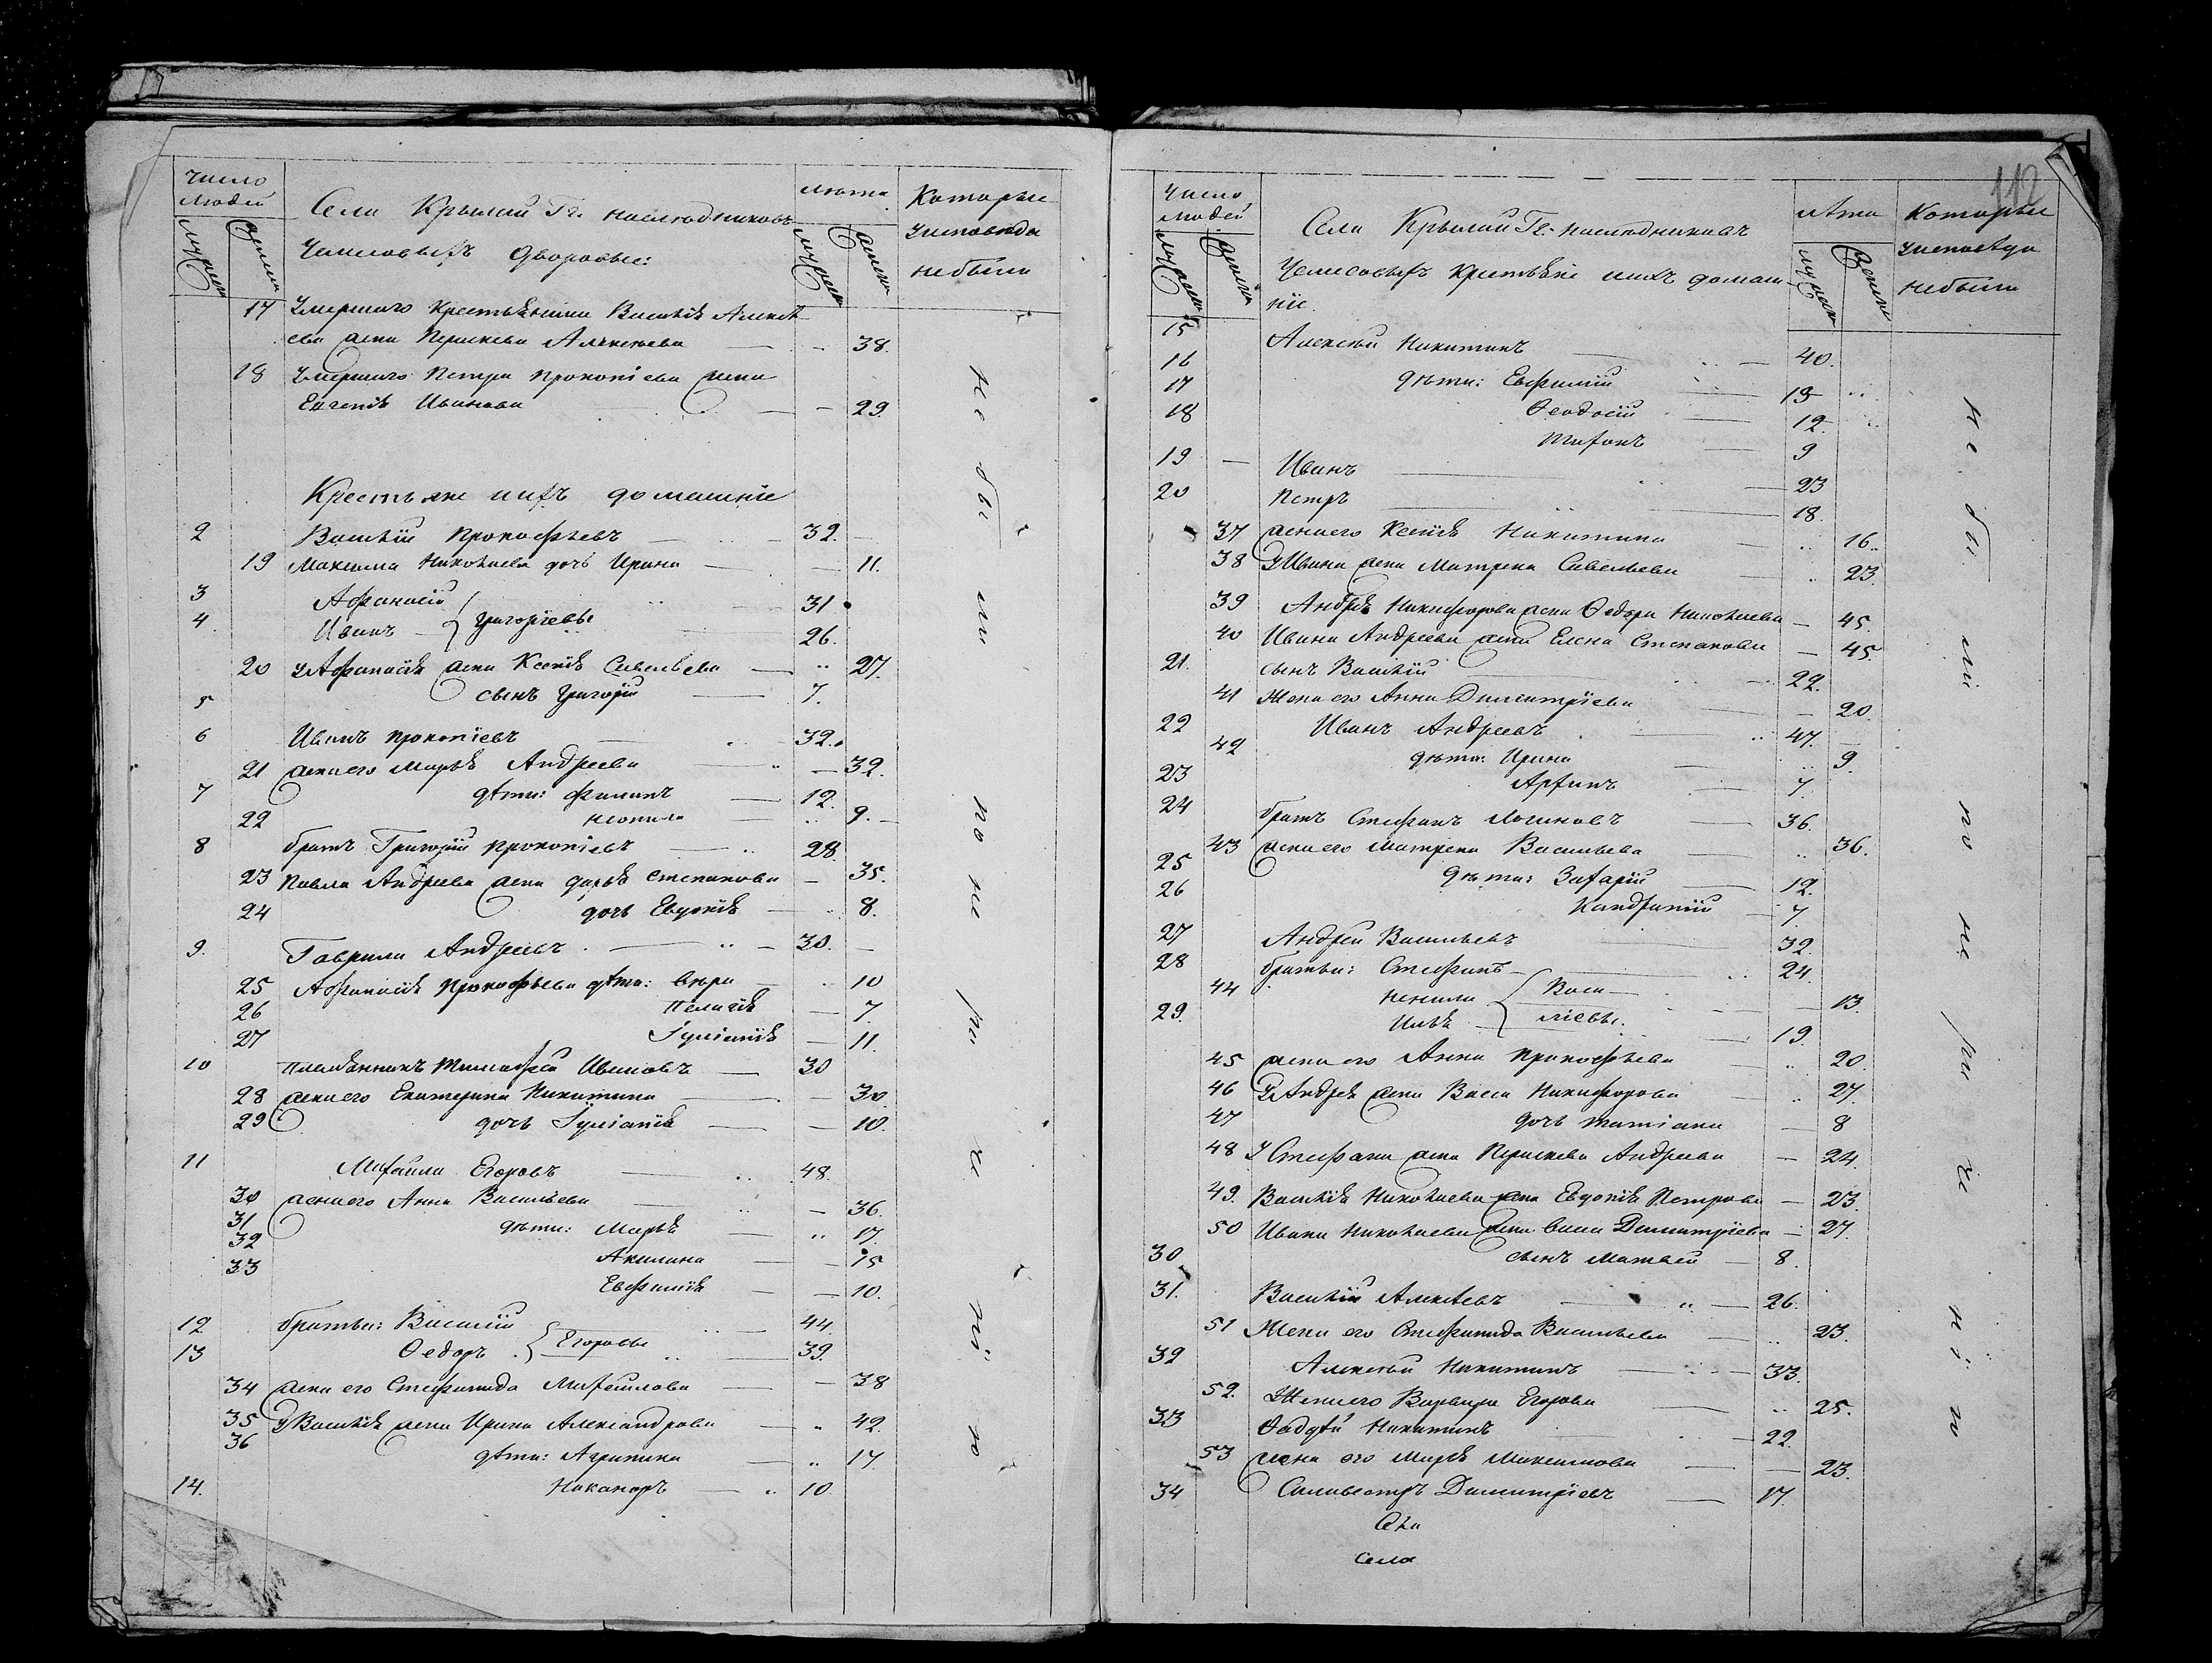 Число людей
мужеска
женска
Села Крымки Гг. наследниковъ
Чемисовыхъ дворовые:
лѣта
мужеска
женска
Которые
у исповѣди
небыли
17 Умершаго Крестьянина Василія Алексѣ
ева жена Перискева Алексѣева — — 38.
18 Умершаго Петра Прокопіева жена
Евгенія Иванова — — 29.
Крестьяне ихъ домашніе
2 Василій Прокофьевъ — 32. —
19 Максима Николаева дочь Ирина — — 11.
3 Афанасій 31
4. Иванъ } Григорьевы 26.
20 У Афанасія жена Ксенія Савельева — 27.
5 сынъ Григорій — 7.
6 Иванъ Прокопіевъ — 32.
21 жена его Марья Андреева — — 32.
7 дѣти: Филипъ — 12.
22 Неонила — 9. —
8 братъ Григорій Прокопіевъ — 28.
23 Павла Андреева жена Дарья Степанова — 35.
24 дочь Евдокія — 8.
9. Гаврила Андреевъ — 30. —
25 Афанасія Прокофьева дѣти: Вѣра 10
26 Пелагія — 7
27 Іуліанія — 11.
10 племянникъ Тимофей Ивановъ — 30
28 жена его Екатерина Никитина — — 30.
29 дочь Іуліанія — — 10.
11 Михаила Егоровъ — 48.
30 жена его Анна Васильева — — 36.
31 дѣти: Марья — 17.
32 Акилина — — 15
33 Евфимія — — 10.
12 братья: Василій — 44.
13 Ѳедоръ } Егоровы — 39.
34 жена его Стефанида Михайлова — — 38
35 У Василія жена Ирина Александрова — 42.
36 дѣти: Агрипина — 17.
14. Никаноръ — 10
не бы ли по не ра че нію
112
Число людей
мужеска
женска
Села Крымки Гг. наследниковъ
Чемисовыхъ Крестьяне ихъ домаш-
ніе.
лѣта
мужеска
женска
Которые
у исповѣди
небыли
15 Алексѣй Никитинъ — 40.
16 дѣти: Евфимій — 15
17 Ѳеодосій — 12.
18 Тихонъ — 9
19 — Иванъ — 23
20 Петръ — 18.
37 жена его Ксенія Никитина — 16.
38 У Ивана жена Матрена Савельева — 23.
39 Андрея Никифорова жена Ѳедора Николаева — 45.
40 Ивана Андреева жена Елена Степанова — 45.
21. сынъ Василій — 22.
41 Жена его Анна Димитріева — — 20.
22 Иванъ Андреевъ — 47. —
42 дѣти: Ирина — 9.
23 Архипъ — 7.
24 братъ Стефанъ Логиновъ — 36.
43 жена его Матрена Васильева — 36.
25 дѣти: Захарій — 12.
26 Кандратій — 7.
27 Андрей Васильевъ — 32.
28 братья: Стефанъ — 24.
44 Ненила { Васи — — 13.
29. Илья — { ліевы. — 19.
45 жена его Анна Прокофьева — 20.
46 У Андрея жена Васса Никифорова — 27.
47 дочь Татіана — 8
48 У Стефана жена Перискева Андреева — 24.
49. Василія Николаева жена Евдокія Петрова — 23.
50 Ивана Николаева жена Васса Димитріева — 27.
30 сынъ Матвей — 8.
31. Василій Алексѣевъ — 26.
51 Жена его Стефанида Васильева — 23.
32 Алексѣй Никитинъ — 33.
52. Жена его Варвара Егорова — 25.
33 Ѳадѣй Никитинъ — 22.
53 жена его Марья Максимова — — 23.
34 Силивестръ Димитріевъ — 17.
Села
не бы ли по не ра че нію